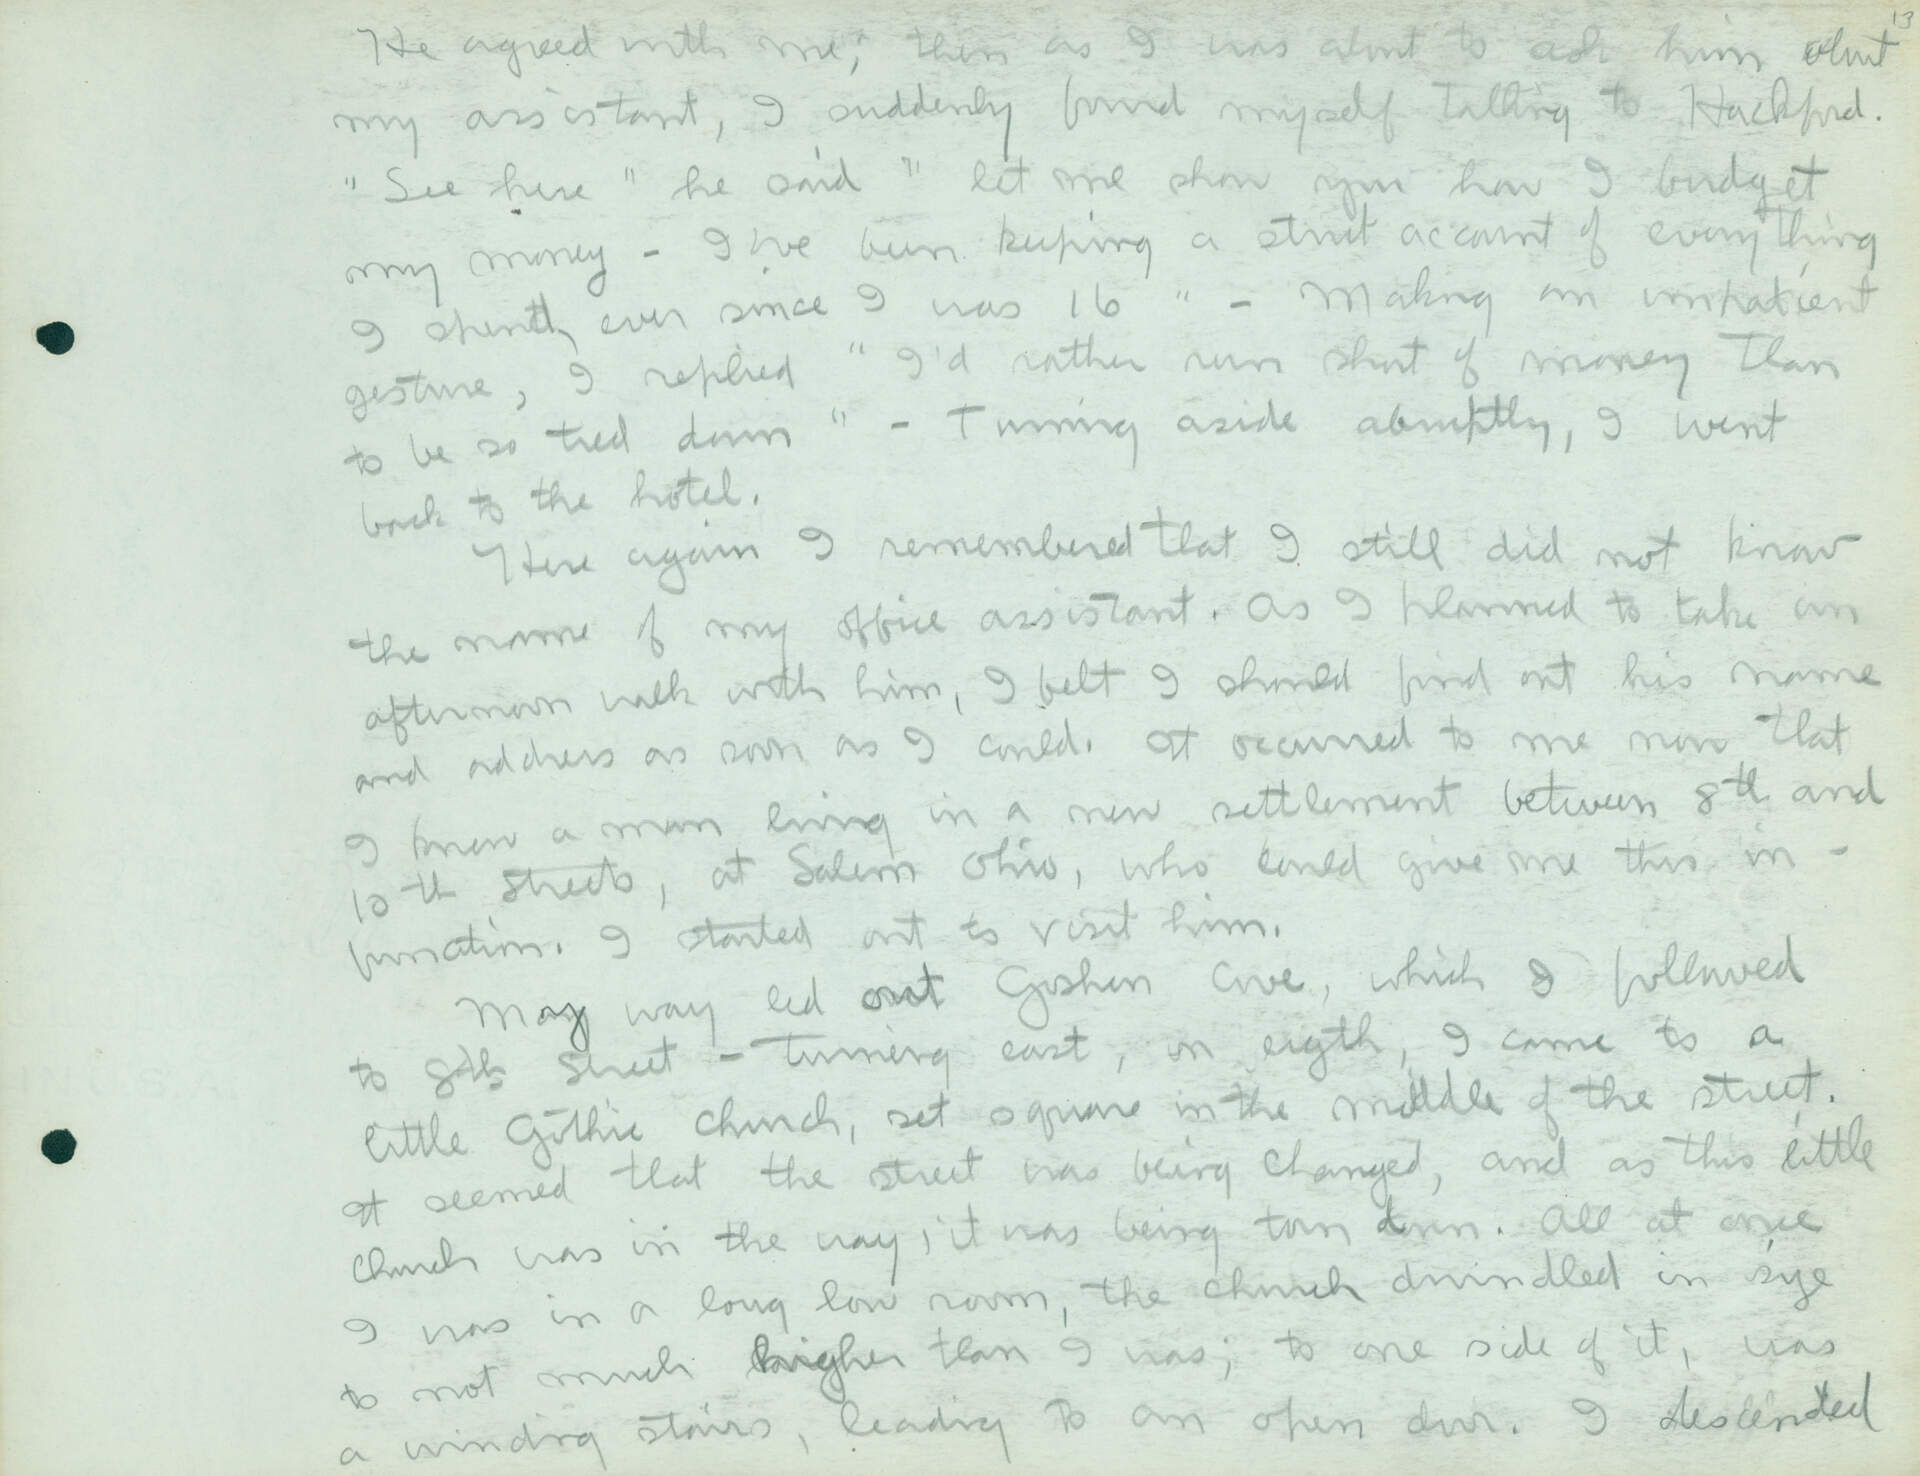 13
He agreed with me; then as I was about to ask him about
my assistant, I suddenly found myself talking to Hackford.
"See here" he said "let me show you how I budget
my money - I've been keeping a strict account of everything
I spent, ever since I was 16" - Making an impatient
gesture, I replied "I'd rather run short of money than
to be so tied down" - Turning aside abruptly, I went
back to the hotel.
Here again I remembered that I still did not know
the name of my office assistant. As I planned to take an
afternoon walk with him, I felt I should find out his name
and address as soon as I could. It occurred to me now that
I knew a man living in a new settlement between 8th and
10th streets, at Salem Ohio, who could give me this in-
formation. I started out to visit him.
My way led out Goshen Ave, which I followed
to 8th Street - Turning east, on eigth, I came to a
little Gothic church, set square in the middle of the street.
It seemed that the street was being changed, and as this little
church was in the way, it was being torn down. All at once
I was in a long low room, the church dwindled in size
to not much higher than I was; to one side of it, was
a winding stairs, leading to an open door. I descended